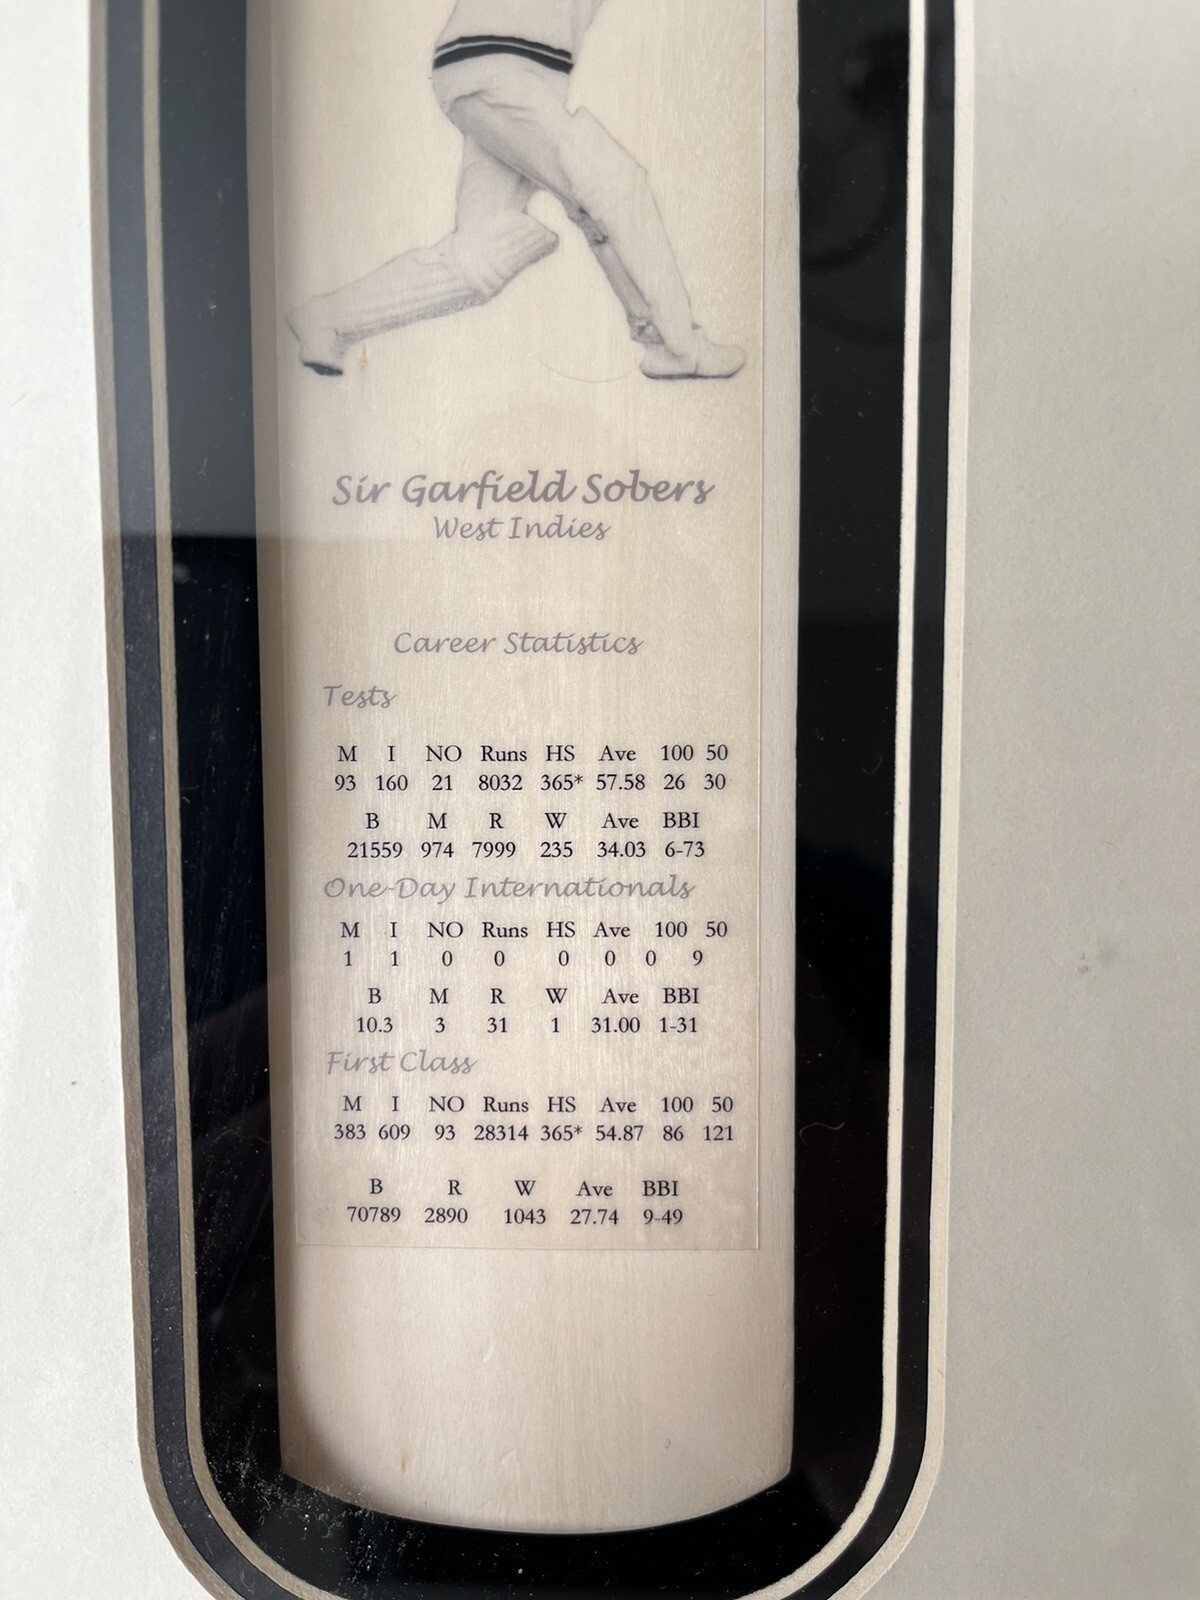 Sir Garfield Sobers
West Indies
Career Statistics
Tests
M I NO Runs HS Ave 100 50
93 160 21 8032 365* 57.58 26 30
B M R W Ave BBI
21559 974 7999 235 34.03 6-73
One-Day Internationals
M I NO Runs HS Ave 100 50
1 1 0 0 0 0 0 9
B M R W Ave BBI
10.3 3 31 1 31.00 1-31
First Class
M I NO Runs HS Ave 100 50
383 609 93 28314 365* 54.87 86 121
B R W Ave BBI
70789 2890 1043 27.74 9-49